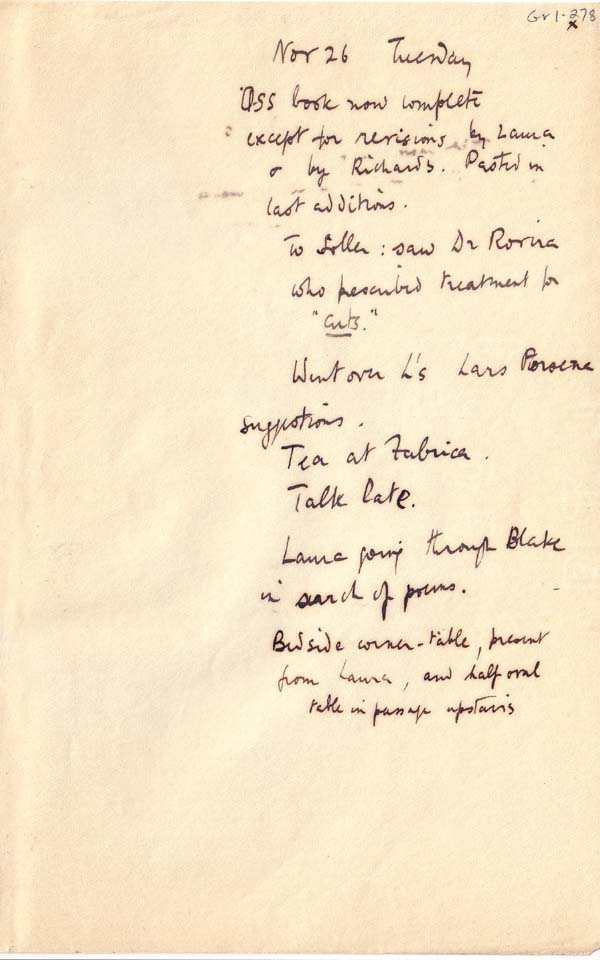 Gr1-278
x
Nov 26 Tuesday
OSS book now complete
except for revisions by Laura
& by Richards. Pasted in
last additions.
To Soller : saw Dr Rovira
who prescribed treatment for
"cuts."
Went over L's Lars Porsena
suggestions.
Tea at Fabrica.
Talk late.
Laura going through Blake
in search of poems.
Bedside corner-table, present
from Laura, and half oval
table in passage upstairs